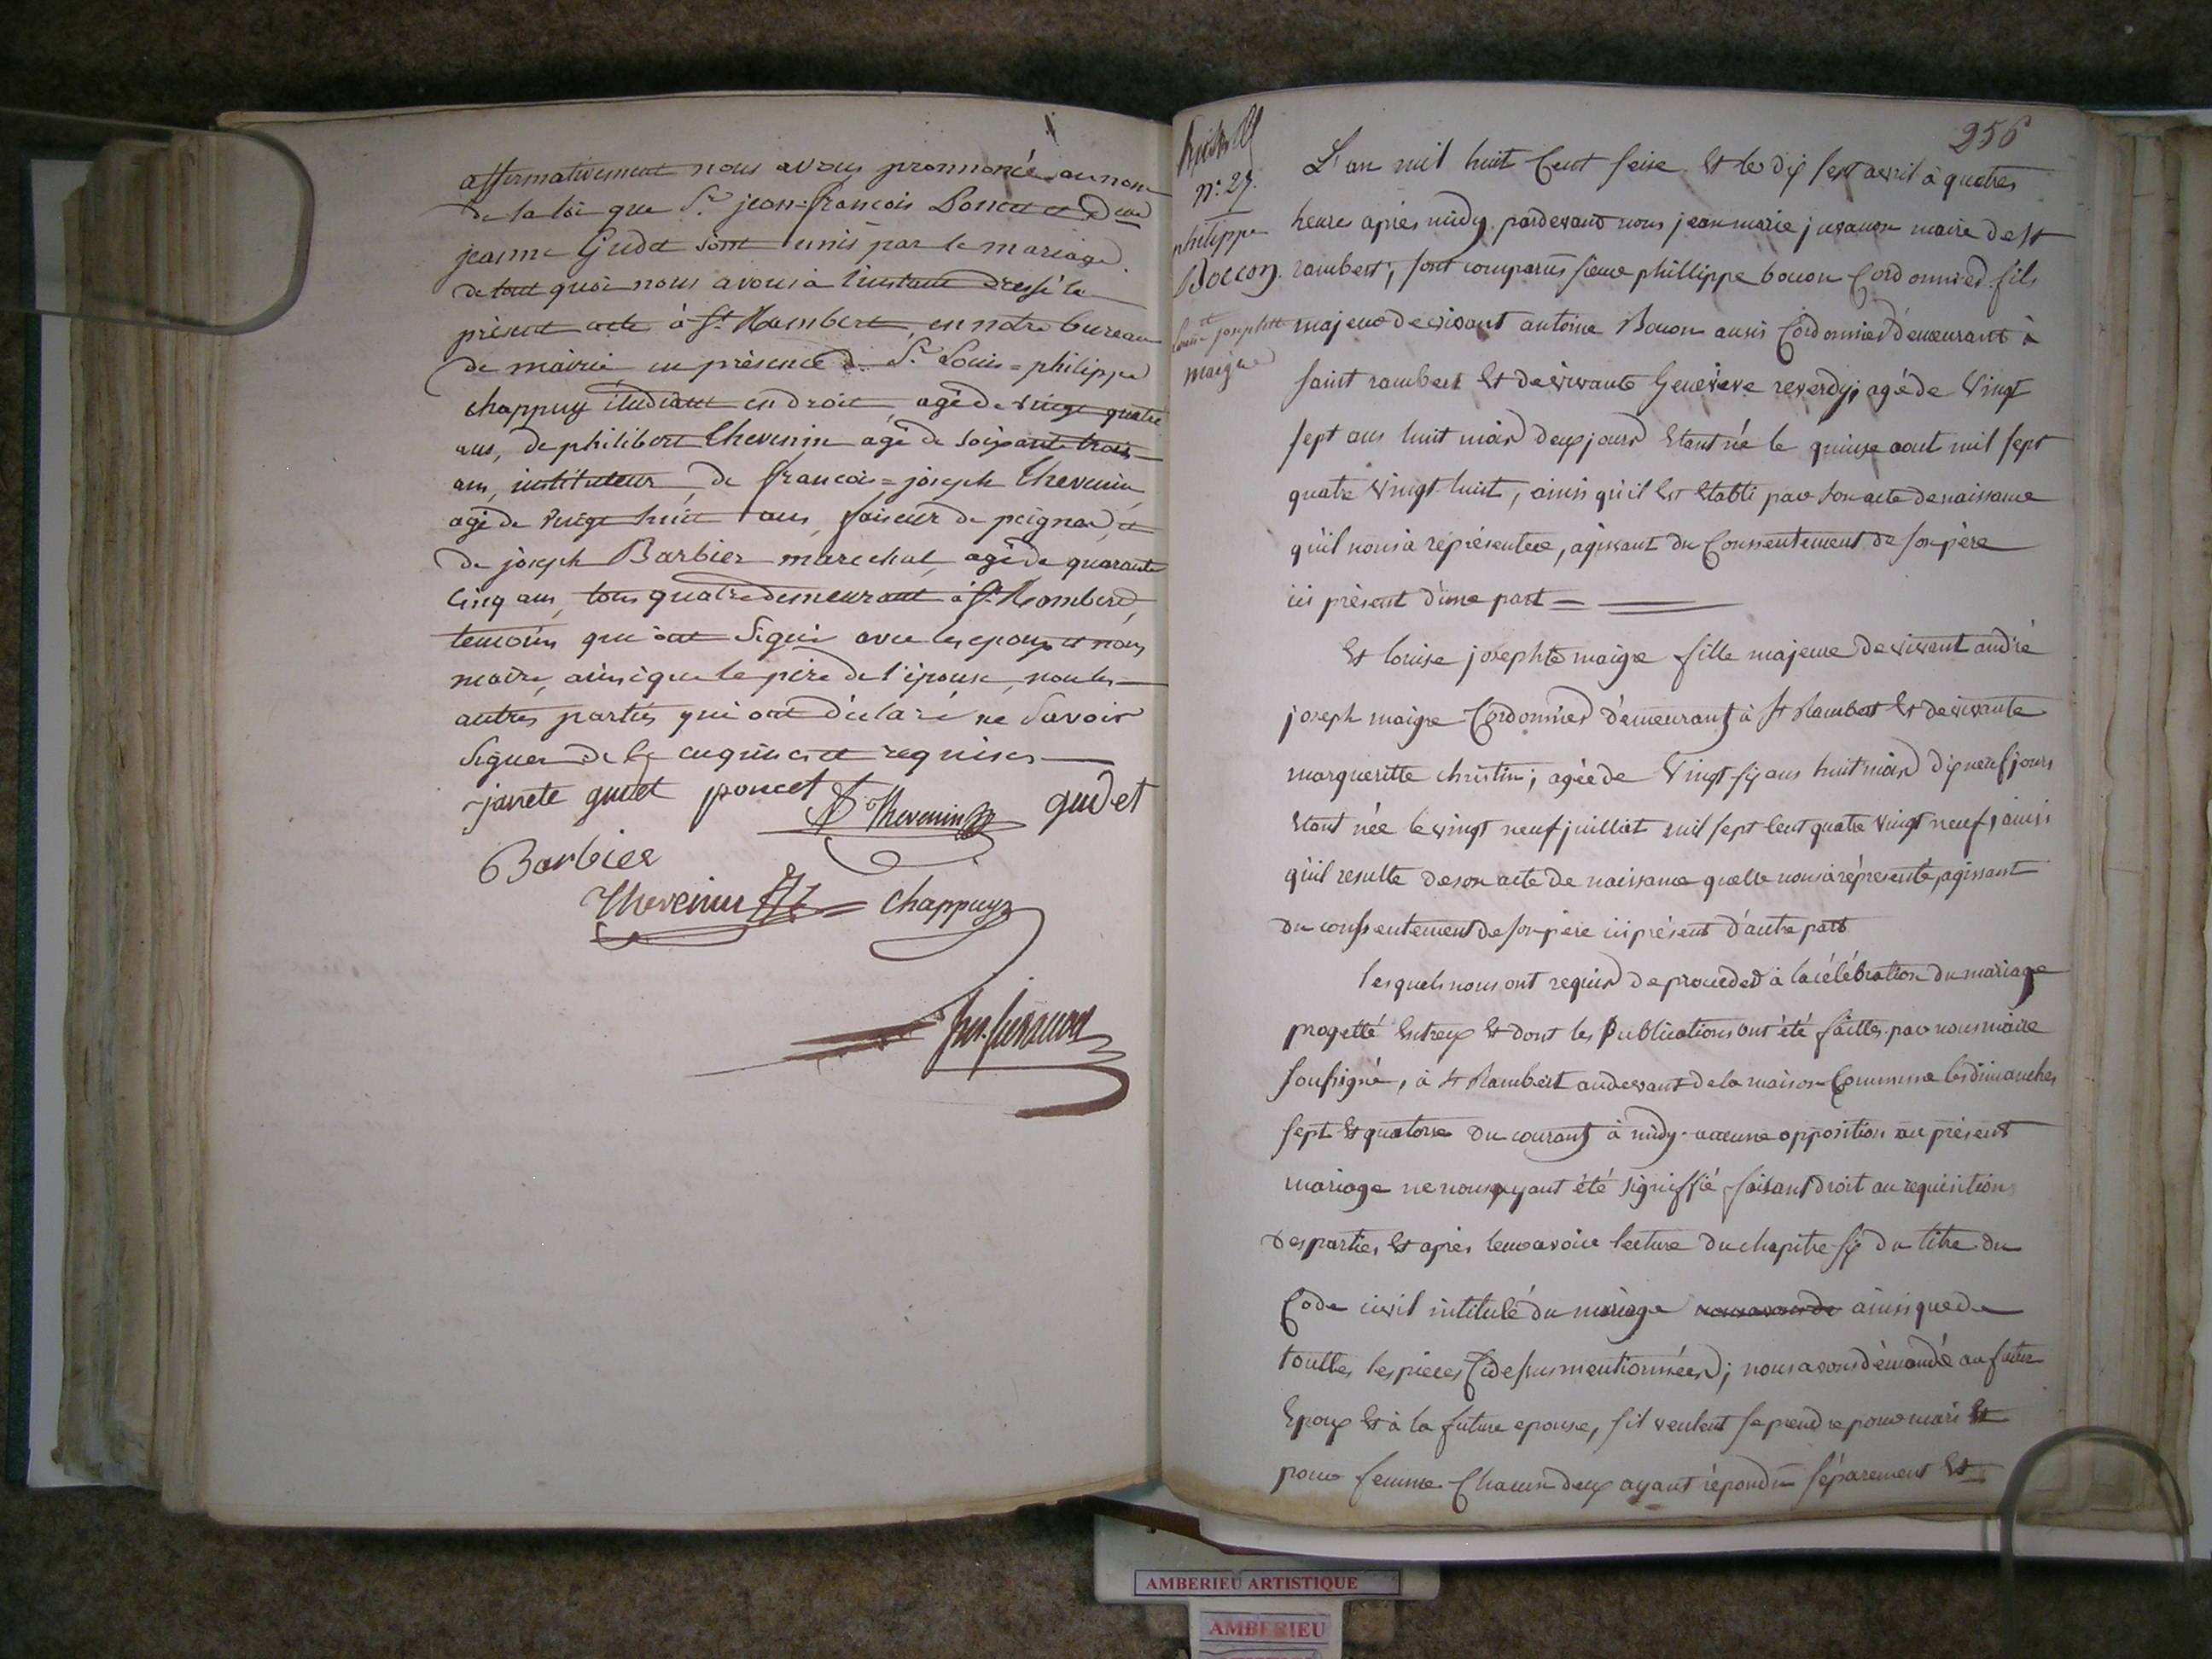 affirmativement nous avons prononcé au nom
de la loi que Sr jean-francois Poncet et Dlle
jeanne Gudet sont unis par le mariage.
de tout quoi nous avons à l'instant dressé le
présent acte à St Rambert, en notre bureau
de mairie en présence de Sr Louis=philippe
chappuy étudiant en droit agé de vingt quatre
ans, de philibert Thevenin agé de soixante trois
ans, instituteur, de francois=joseph Thevenin
agé de vingt huit ans, faiseur de peignes, et
de joseph Barbier marechal, agé de quarante
cinq ans, tous quatre demeurant à St Rambert,
temoins qui ont signé avec les epoux et nous
maire, ainsi que le père de l'épouse, non les
autres parties qui ont déclaré ne savoir
signer de ce enquises et requises
janete gudet poncet Thevenin gudet
Barbier
Thevenin chappuy
256
n° 27.
philippe
Boccon.
et
Louise josephte
maigre
L'an mil huit Cent seise et le dix sept avril à quatres
heures après midy pardevant nous jean marie juvanon maire de st
rambert, sont comparus sieur phillippe bocon Cordonnier fils
majeur de vivant antoine Bocon aussi Cordonnier demeurant à
saint rambert et de vivante Genevieve reverdy, agé de vingt
sept ans huit mois deux jours etant né le quinze aout mil sept
quatre vingt huit, ainsi qu'il est etabli par son acte de naissance
qu'il nous à représentée, agissant du Conssentement de son père
ici présent d'une part
et louise josephte maigre fille majeure de vivant andré
joseph maigre Cordonnier demeurant à st Rambert et de vivante
margueritte christin; agée de vingt six ans huit mois dix neuf jours
etant née le vingt neuf juilliet mil sept cent quatre vingt neuf, ainsi
qu'il resulte de son acte de naissance quelle nous à réprésenté, agissant
du conssentement de son père ici présent d'autre part
lesquels nous ont requis de proceder à la célébration du mariage
progetté entreux et dont les Publications ont été faittes par nous maire
soussigné, à st Rambert au devant de la maison Commune les dimanches
sept et quatorse du courant à midy. aucune opposition au présent
mariage ne nous ayant été signiffié faisant droit au requisition
des parties et après leur avoir lecture du chapitre six du titre du
Code civil intitulé du mariage nous avons de ainsi que de
touttes les pieces Cidessus mentionnées; nous avons demandé au futur
epoux et à la future epouse, s'il veulent se prendre pour mari et
pour femme Chacun deux ayant répondu séparement et
AMBERIEU ARTISTIQUE
AMBERIEU